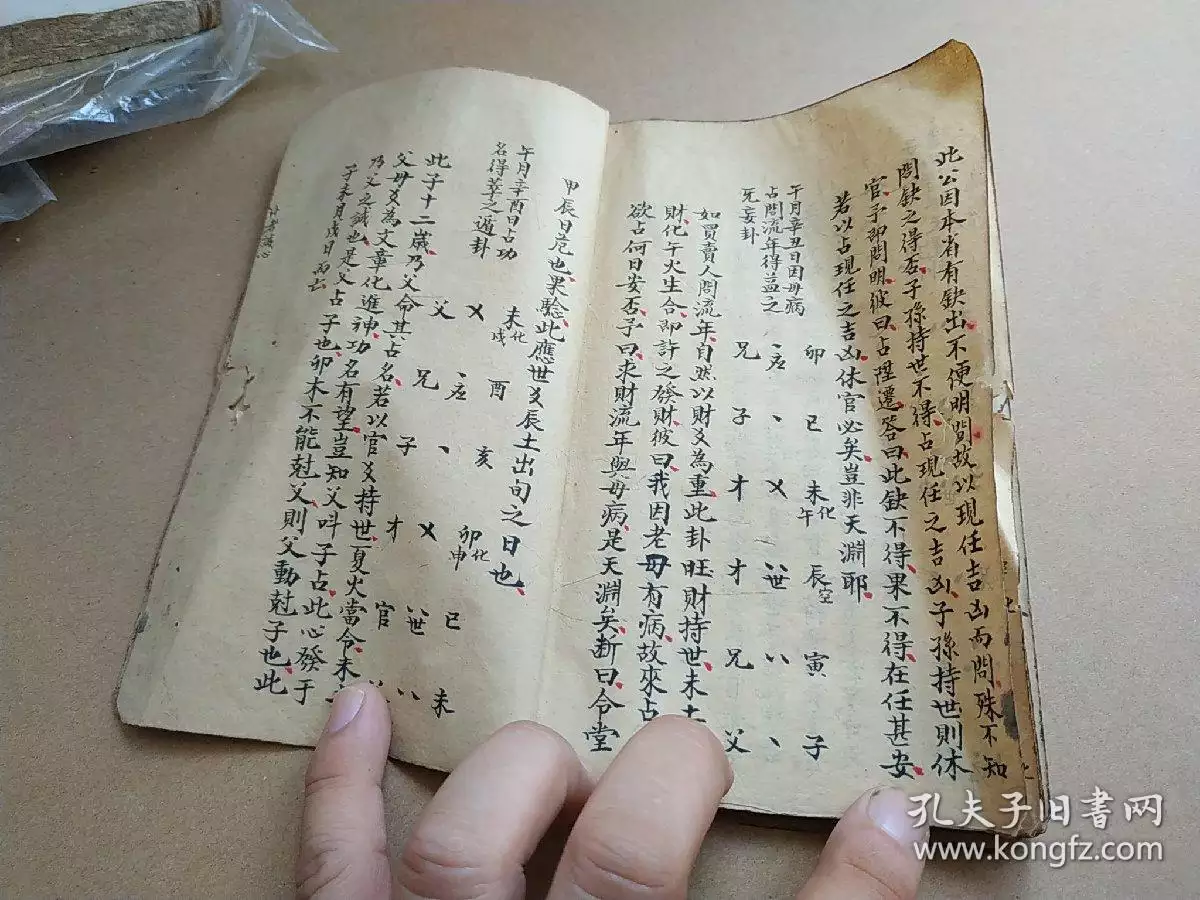 此公因本省有缺出不便明問故以現任吉凶而問殊不知
問缺之得否子孫持世不得占現任之吉凶子孫持世則休
官予即問明彼曰占陞遷答曰此缺不得果不得在任甚安
若以占現任之吉凶休官必矣豈非天淵耶
午月辛丑日因母病
占問流年得益之
无妄卦
卯 巳 未化午 辰空 寅 子
兄 子 才 才 兄 父
應 世
如買賣人問流年自然以財爻為重此卦旺財持世未土
財化午火生合即許之發財彼曰我因老母有病故來占
欲占何日安否予曰求財流年與母病是天淵矣斷曰令堂
甲辰日危也果驗此應世爻辰土出旬之日也
午月辛酉日占功
名得萃之遁卦
未化戌 酉 亥 卯化申 巳 未
父 兄 子 才 官
應 世
此子十二歲乃父命其占名若以官爻持世夏火當令未
父母爻為文章化進神功名有望豈知父呌子占此心發于
乃父之誠也是父占子也卯木不能尅父則父動尅子也此
子未月戊日而亡
孔夫子旧书网
www.kongfz.com